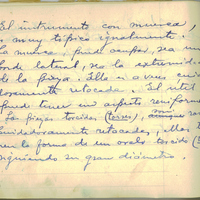 El instrumento con muesca,
es muy típico igualmente.
La muesca, puede ocupar, sea un
borde lateral, sea la extremidad
de la pieza. Ella es a veces cuida
dosamente retocada. El útil
puede tener un aspecto reniforme.
Las piezas torcidas (torses), aunque
cuidadosamente retocadas, ellas
en la forma de un ovalo torcido
siguiendo su gran diámetro.